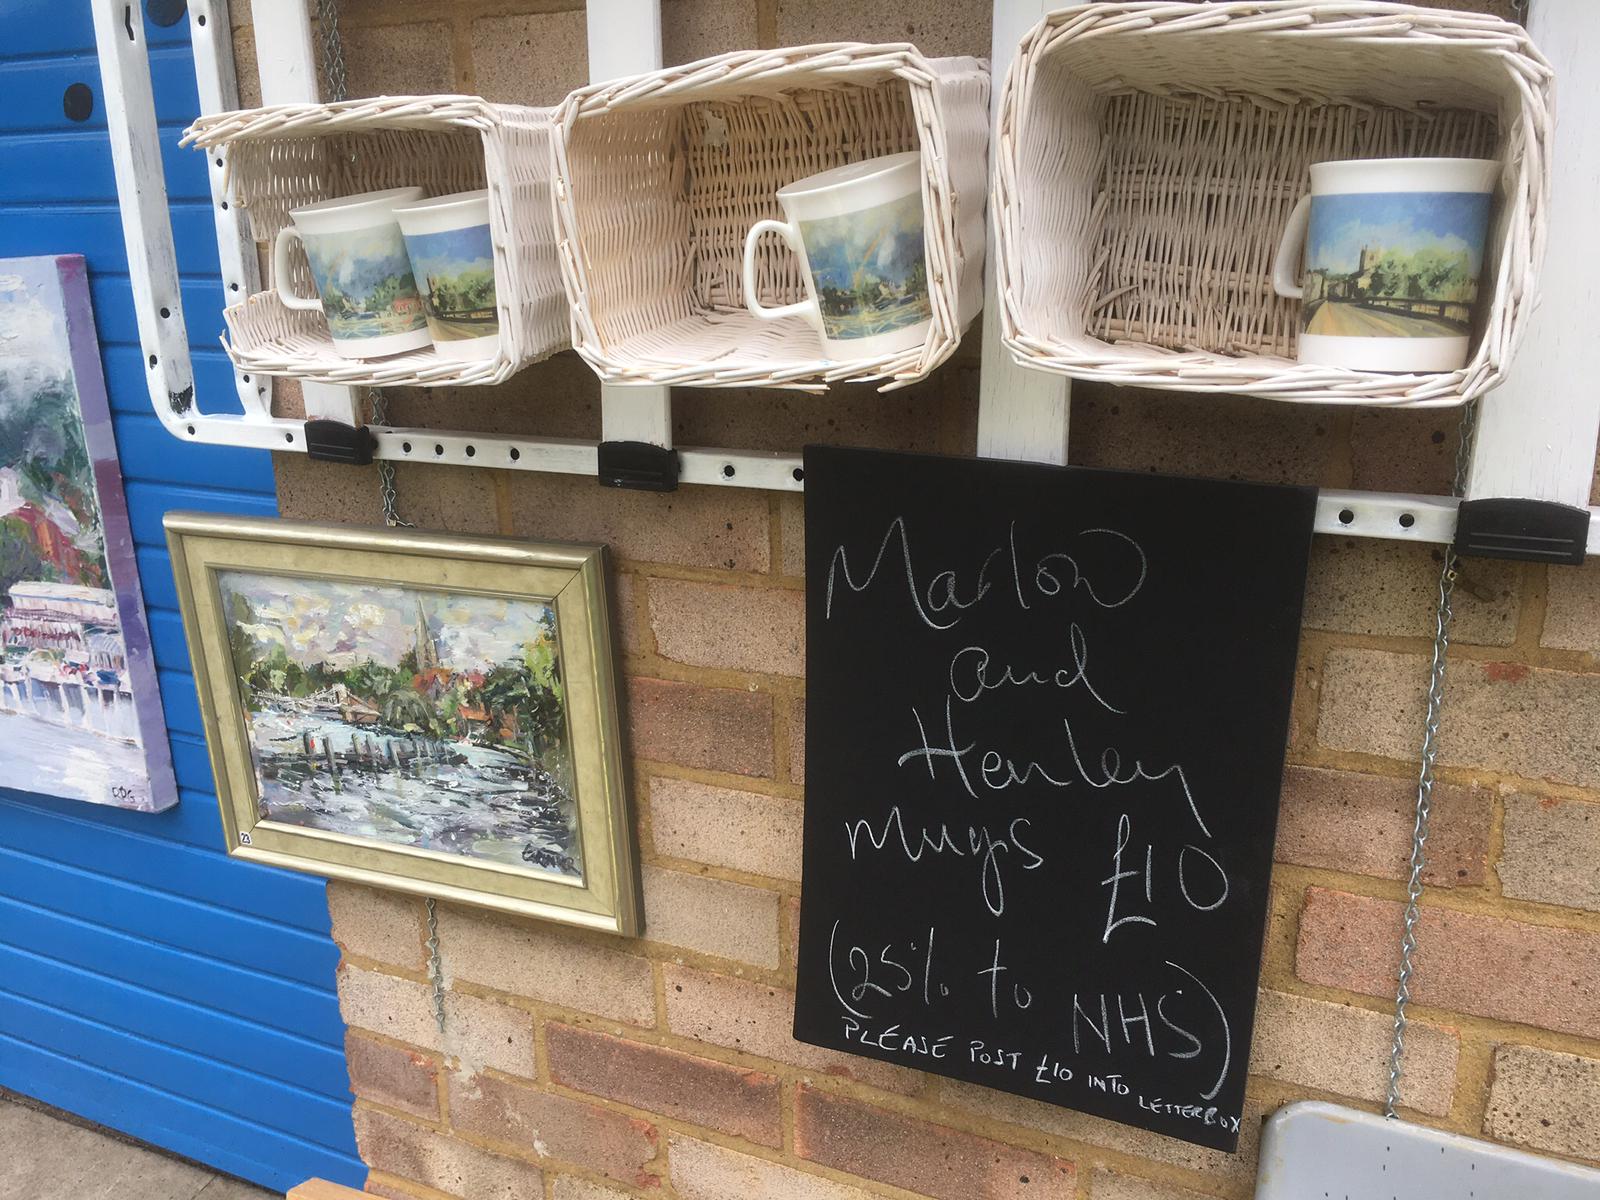 Marlow
and
Henley
mugs £10
(25% to NHS)
PLEASE POST £10 INTO
LETTERBOX
23